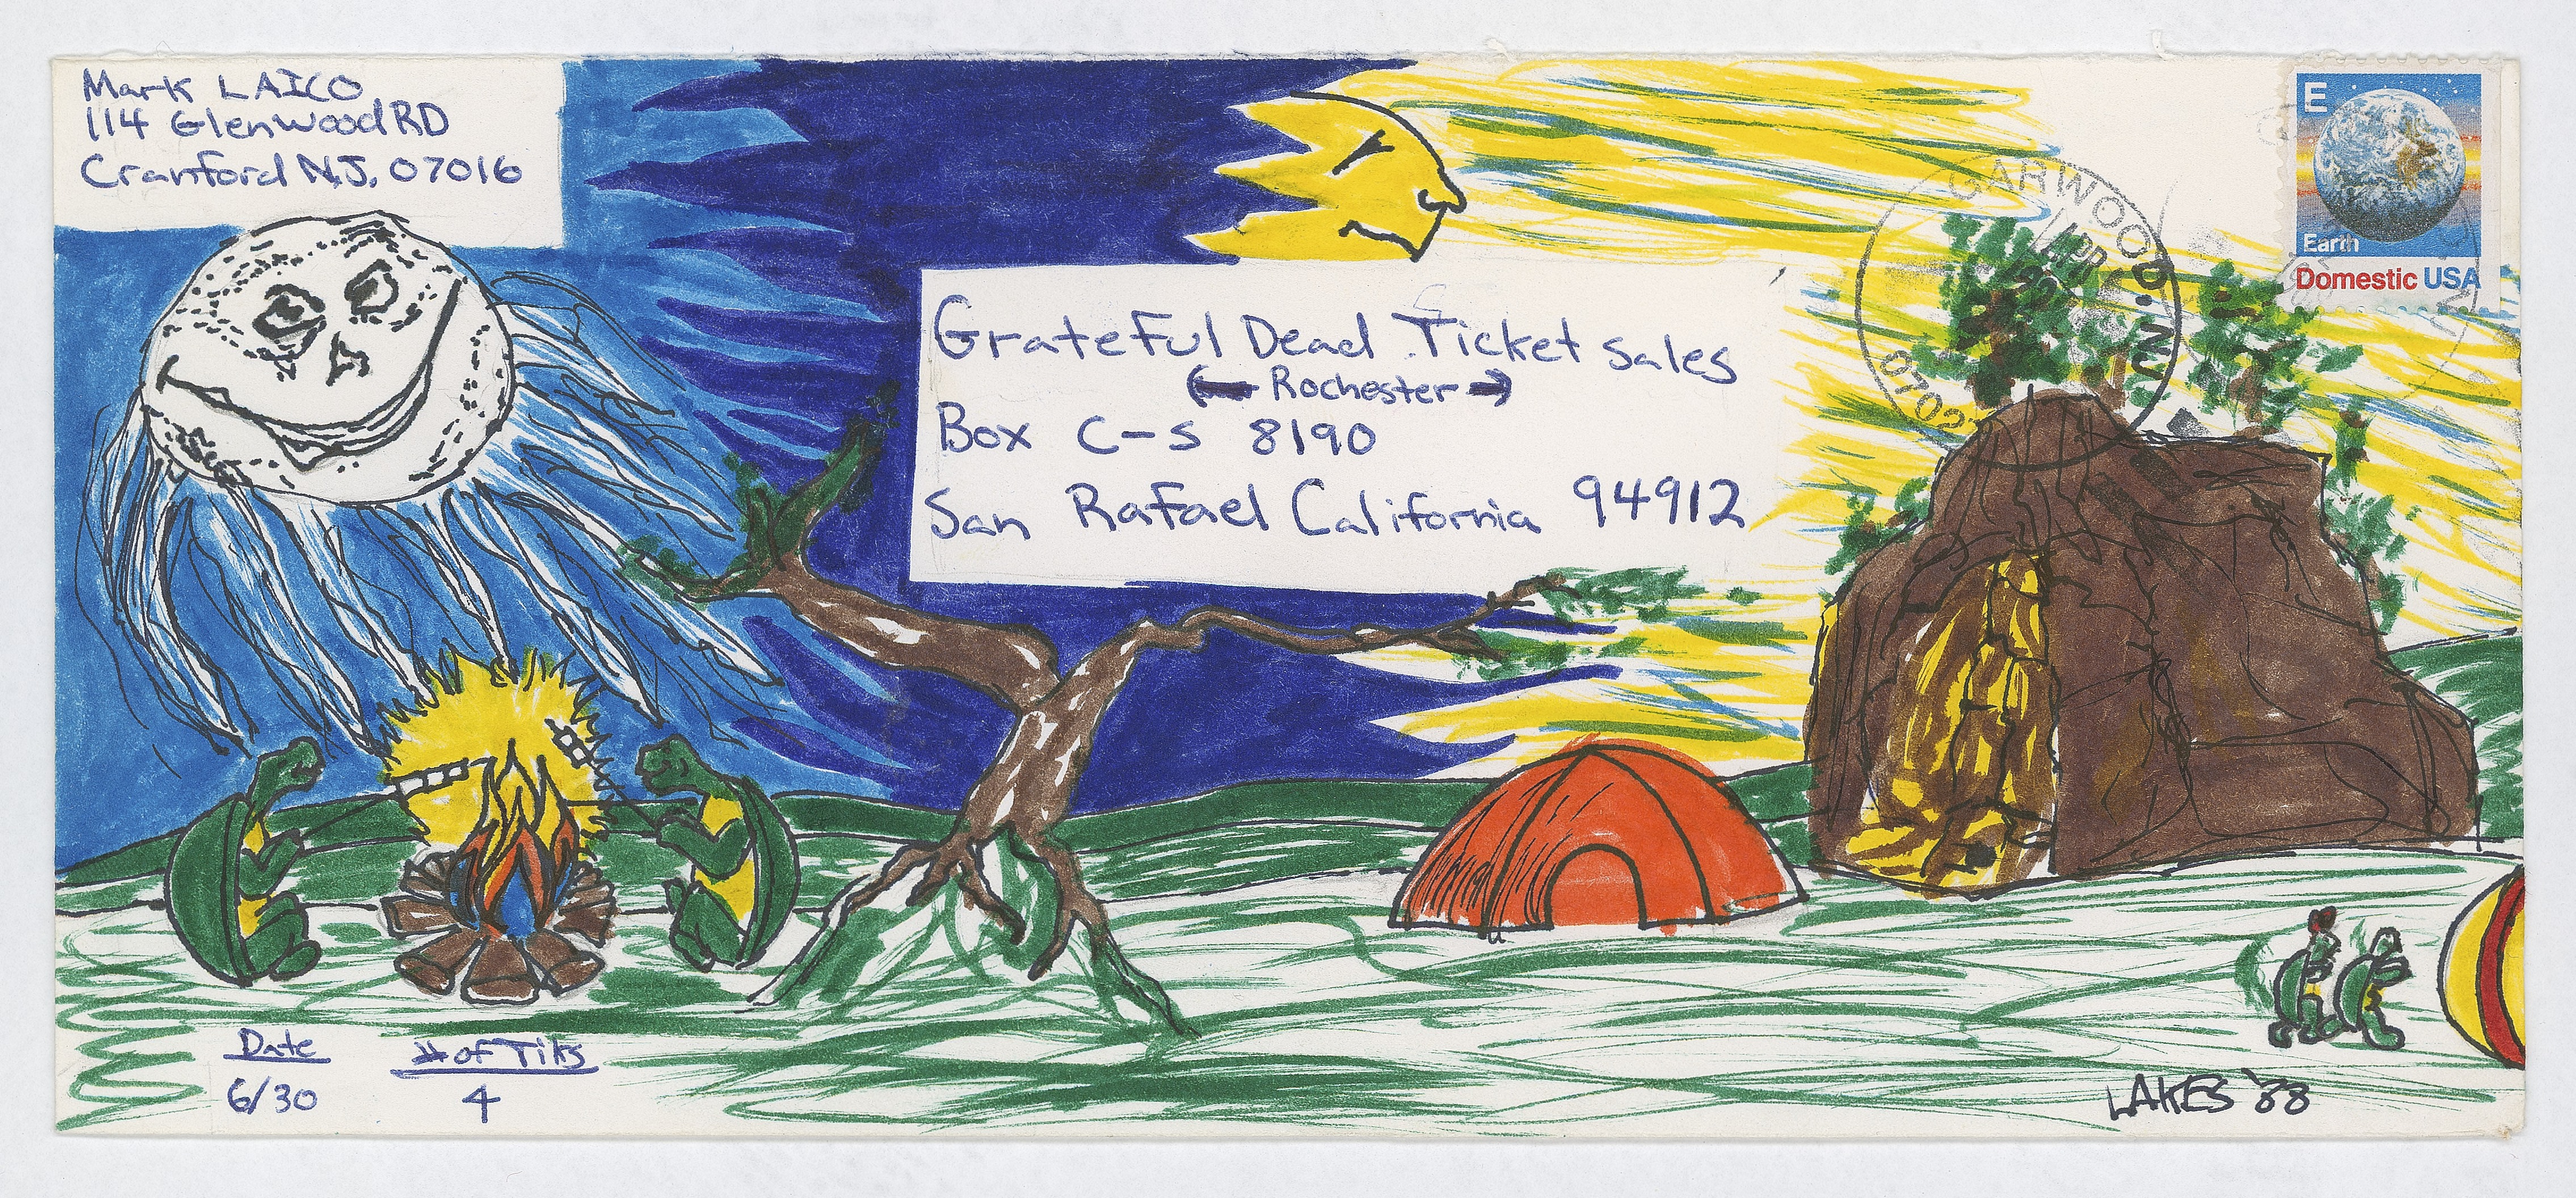 Mark LAICO
114 Glenwood RD
Cranford N.J. 07016
E
Earth
Domestic USA
GARWOOD, N.J.
APR
07010
Grateful Dead Ticket Sales
← Rochester →
Box C-S 8190
San Rafael California 94912
Date
6/30
# of Tiks
4
LAKES '88